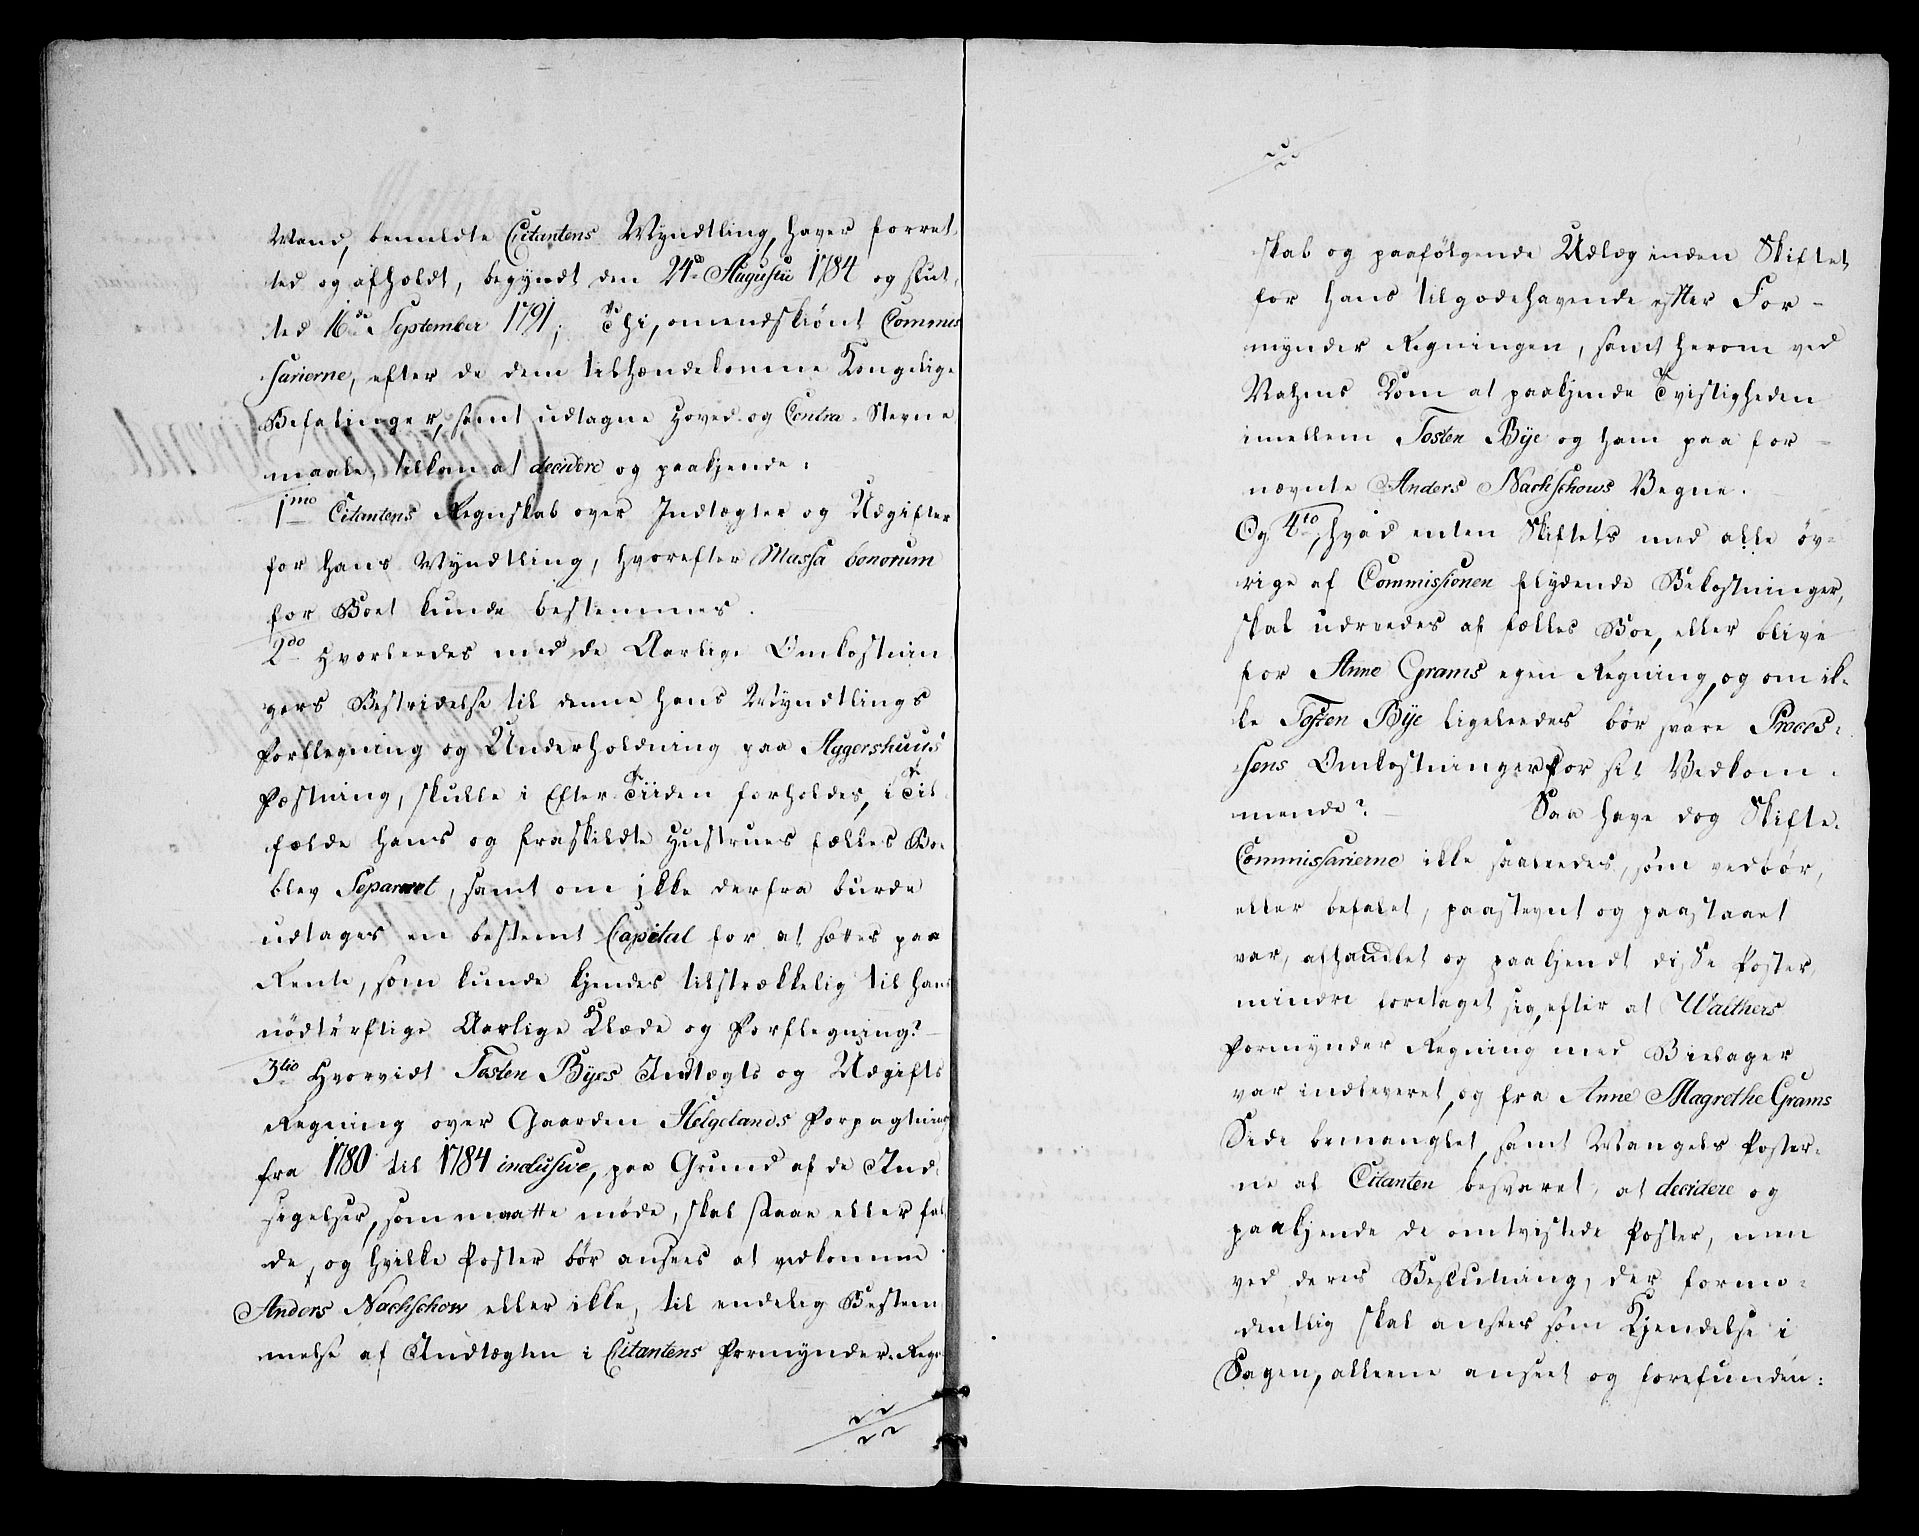 Mand, bemeldte Citantens Myndtling, haver forret-
ted og afholdt, begyndt den 24d Augustii 1784 og slut-
ted 16de September 1791; Thi, omendskiønt Commis
sarierne, efter de dem tilhændekomne Kongelige
Befalinger, samt udtagne Hoved og Contra-Stevne
maale, tilkom at decidere og paakjende:
1mo Citantens Regnskab over Indtægter og Udgifter
for hans Myndtling, hvorefter Massa bonorum
for Boet kunde bestemmes.
2do Hvorleedes med de Aarlige Omkostnin
gers Bestridelse til denne hans Myndtlings
Forflegning og Underholdning paa Aggershuus
Fæstning, skulle i Efter Tiiden forholdes, i Til
fælde hans og fraskildte Hustrues fælles Boe
blev Separeret, samt om ikke derfra burde
udtages en bestemt Capital for at sættes paa
Rente, som kunde kjendes tilstrækkelig til hans
nödtörftige Aarlige Klæde og Forflegning?
3tio Hvorvidt Tosten Byes Indtægts og Udgifts
Regning over Gaarden Helgelands Forpagtning
fra 1780 til 1784 inclusive, paa Grund af de Ind-
sigelser, som maatte møde, skal staae eller fal-
de, og hvilke Poster bør ansees at vedkomme
Anders Nachschow eller ikke, til endelig Bestem
melse af Indtægten i Citantens Formynder-Regn-
skab og paafölgende Udlæg inden Skiftet
for hans tilgodehavende efter For-
mynder Regningen, samt herom ved
Nahms Dom at paakjende Tvistigheden
imellem Tosten Bye og ham paa for-
nævnte Anders Nachschows Vegne.
Og 4to, hvad enten Skiftets med alle öv-
rige af Commissionen flydende Bekostninger,
skal udreedes af fælles Boe, eller blive
for Anne Grams egen Regning, og om ik-
ke Tosten Bye ligeleedes bør svare Proces-
sens Omkostninger for sit Vedkom-
mende? Saa have dog Skifte-
Commissarierne ikke saaleedes, som vedbör,
eller befalet, paastevnt og paastaaet
var, afhandlet og paakjendt disse Poster,
mindre foretaget sig, efter at Walthers
Formynder Regning med Bielager
var indleveret, og fra Anne Magrethe Grams
Side bemanglet, samt Mangels Poster-
ne af Citanten besvaret, at decidere og
paakjende de omtvistede Poster, men
ved deres Beslutning, der formo-
dentlig skal ansees som Kjendelse i
Sagen, alleene anseet og forefunden: